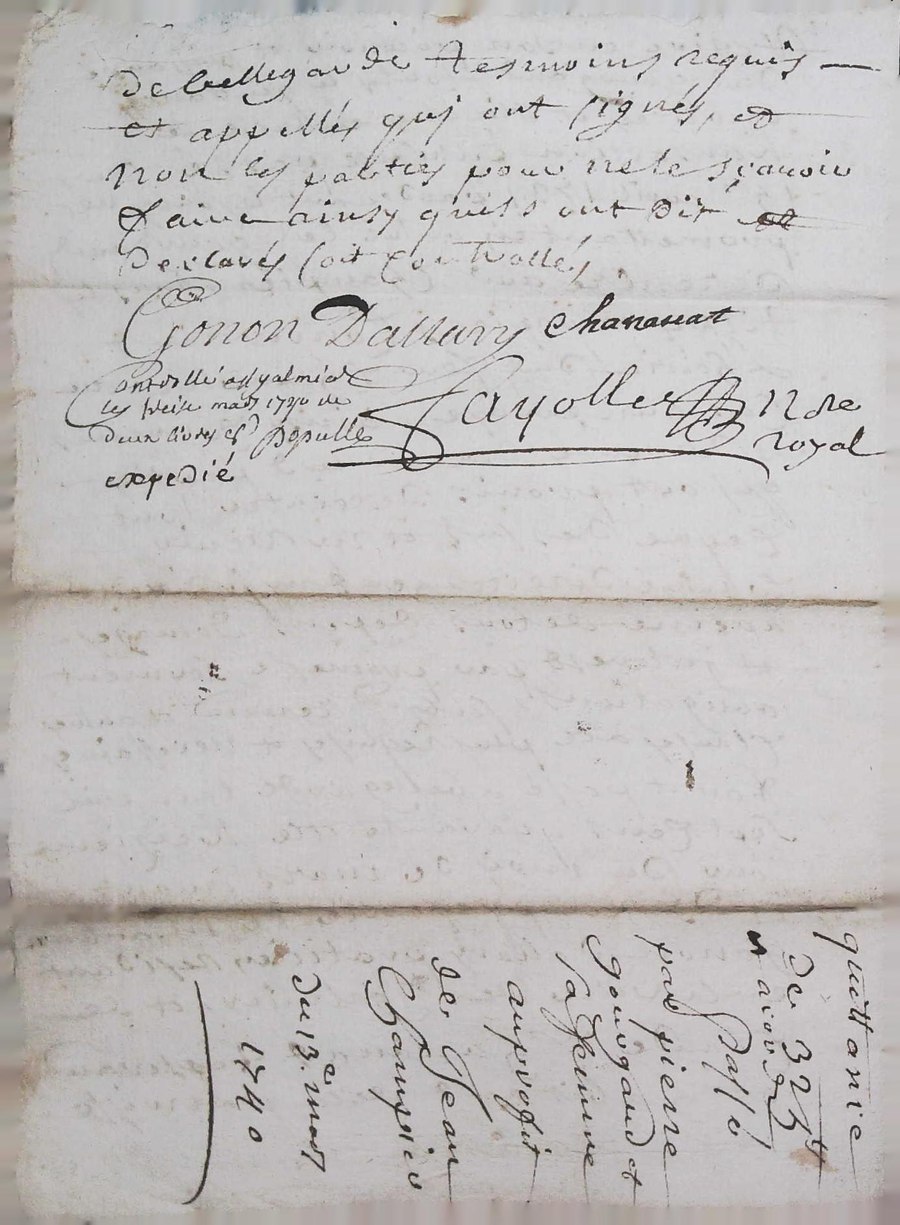 de bellegarde tesmoins requis
et appellés quj ont signés, et
non les parties pour ne le sçavoir
faire ainsy quils ont dit et
declarés soit controllés,
Gonon Dallary Chanavat
Controllé a St galmier
le treize mars 1740 de
deux livres
expedié
fayolle Nore
royal
quittance
de 325tt
acord
passé
par pierre
gourgaud et
sa femme
au proffit
de Jean
du 13e. mars
1740